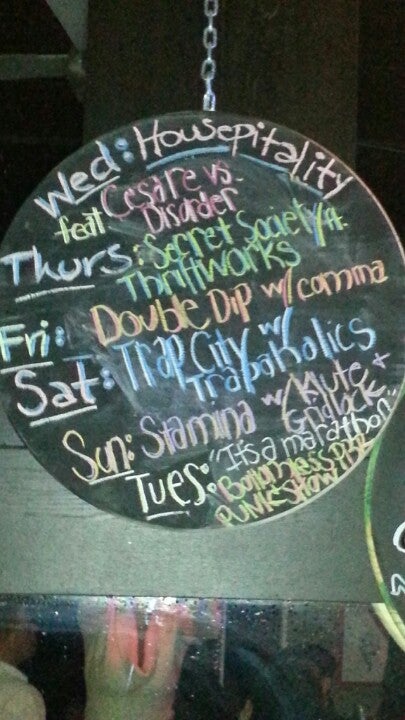 Wed: Housepitality
feat Cesare vs.
Disorder
Thurs: Secret Society ft.
Thriftworks
Fri: Double Dip w/ comma
Sat: Trap City w/
Trapaholics
Sun: Stamina w/ Mute +
Gridlock
Tues: "Its a marathon"
Bottomless PBR
PUNK SHOW